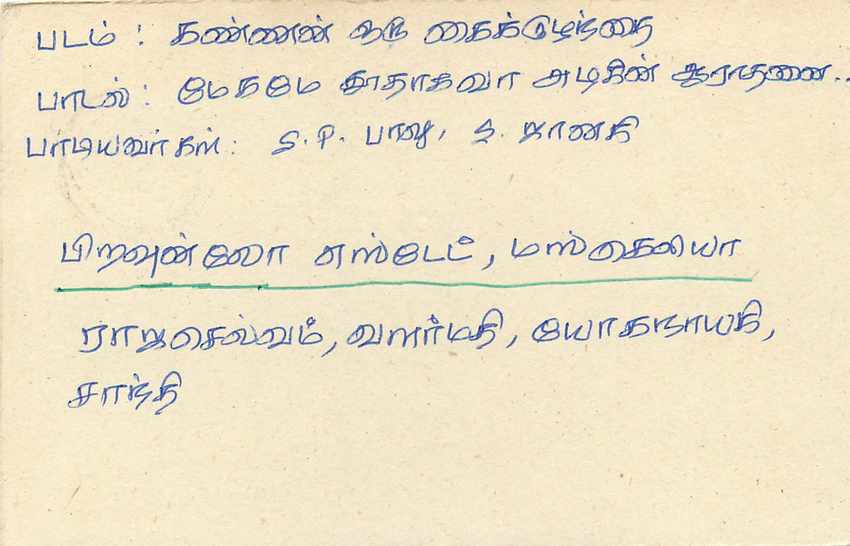 படம் : கண்ணன் ஒரு கைக்குழந்தை
பாடல் : மேகமே தூதாகவா அழகின் ஆராதனை..
பாடியவர்கள் : S. P. பாலு, S. ஜானகி
பிறவுன்லோ எஸ்டேட், மஸ்கெலியா
ராஜசெல்வம், வளர்மதி, யோகநாயகி,
சாந்தி